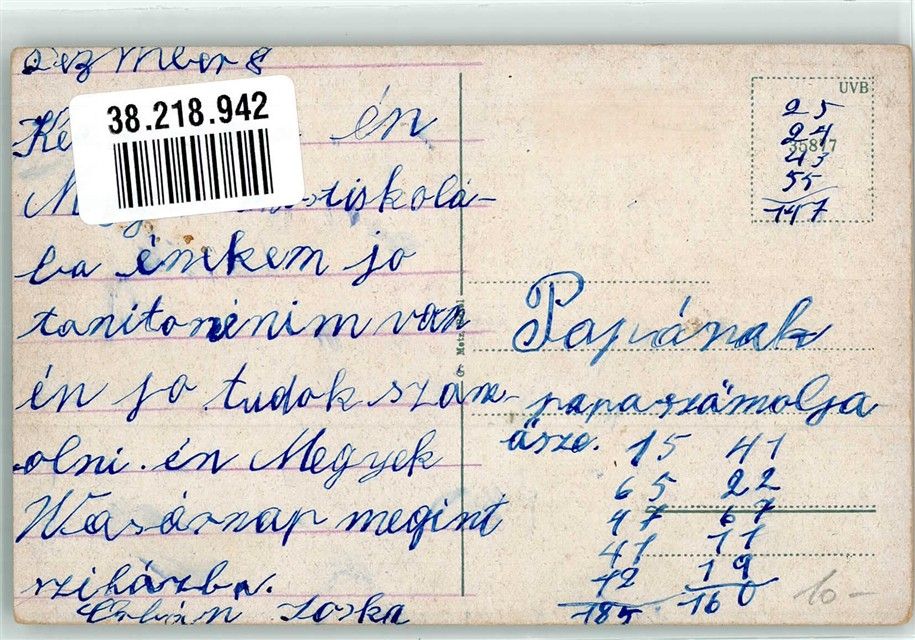 Dezember 8
38.218.942
Ke én
M tiskolá-
ba énekem jo
tanitonénim van
én jo tudok szám-
olni. én Megyek
Wasárnap megint
sziházba.
Joska
UVB
35817
25
24
43
55
147
Papának
papa számolja
ásze.
15 41
65 22
47 67
41 11
12 19
185 160
10-